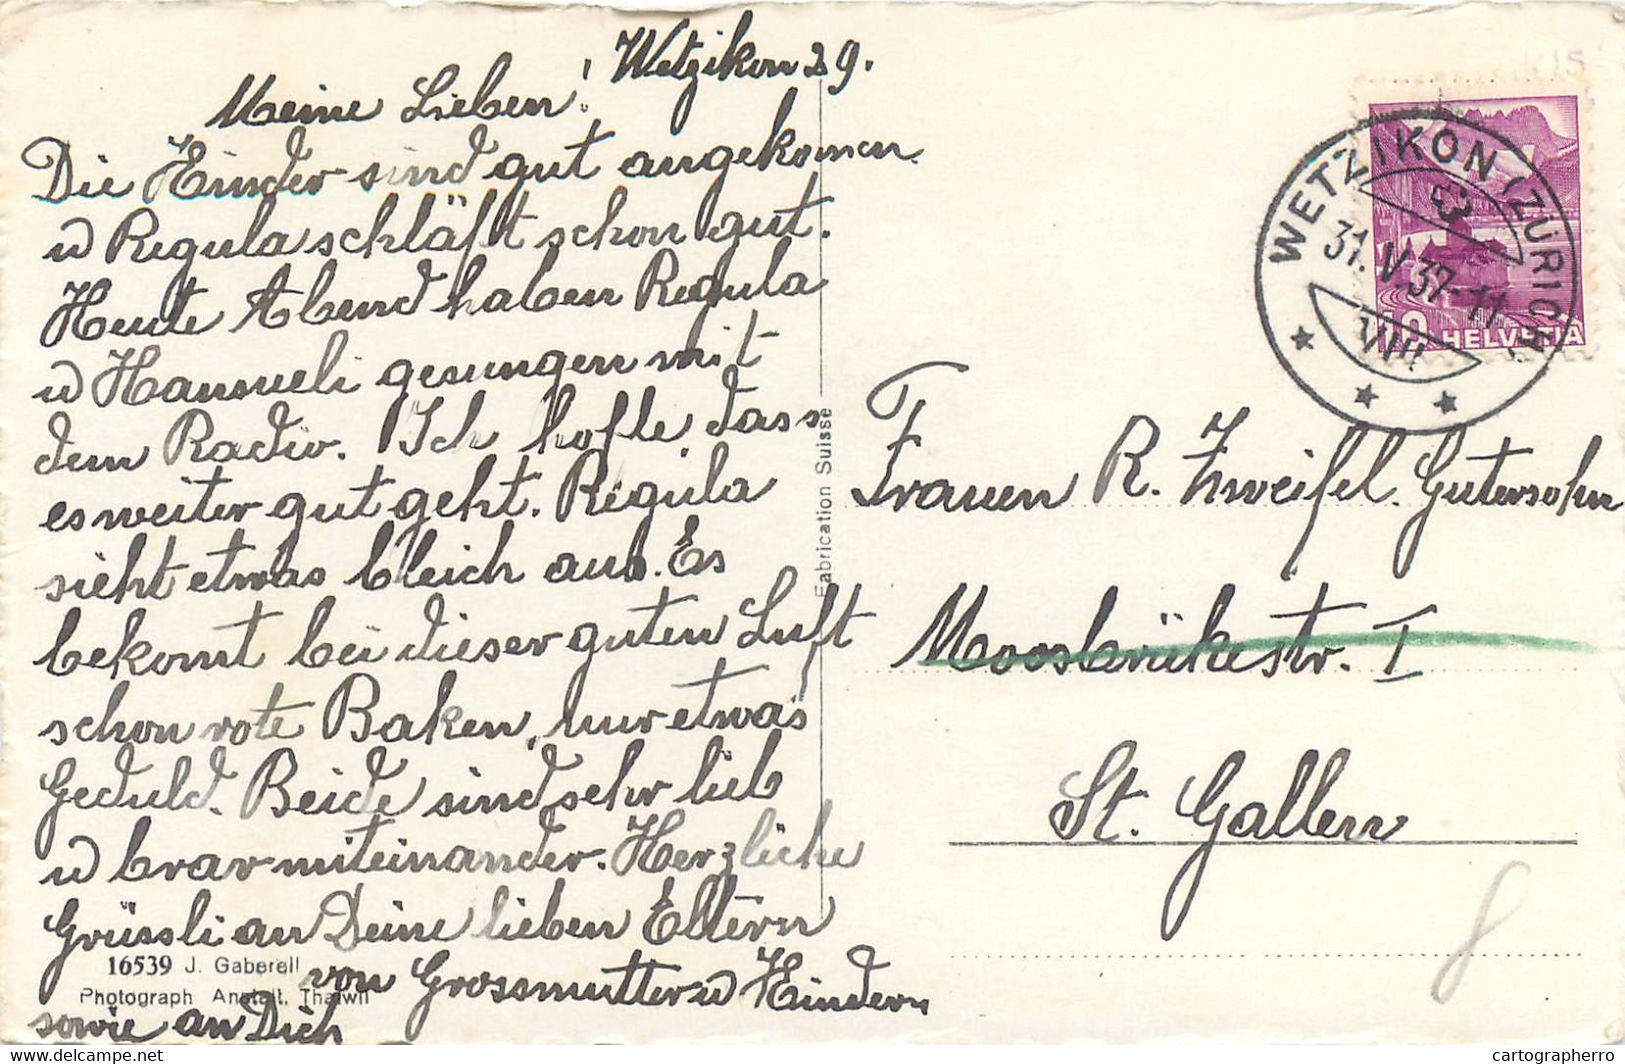 Wetzikon 29.
Meine Lieben!
Die Kinder sind gut angekomen
u Regula schläft schon gut.
Heute Abend haben Regula
u Hansueli gesungen mit
dem Radio. Ich hoffe dass
es weiter gut geht. Regula
sieht etwas bleich aus. Es
bekomt bei dieser guten Luft
schon rote Baken, nur etwas
Geduld. Beide sind sehr lieb
u brav miteinander. Herzliche
Grüssli an Deine lieben Eltern
von Grossmutter u Kindern
sowie an Dich
16539 J. Gaberell
Photograph Anstalt, Thalwil
Fabrication Suisse
WETZIKON (ZÜRICH)
31.V.37-11
VIII
10 HELVETIA
Frauen R. Zweifel. Gutersohn
Moosbrükestr. I
St. Gallen
8
cartographerro